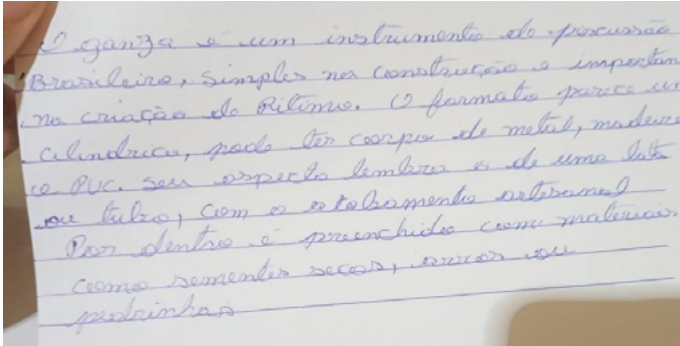 O ganza e um instrumento de percussão
Brasileiro, simples na construção e importan
na criação do Ritimo. O formato parece um
Cilindrico, pode ter corpo de metal, madeira
e PVC. seu aspecto lembra o de uma lata
ou tubo, com o acabamento artesanal
Por dentro é preenchido com materiais
como sementes secas, ou
pedrinhas